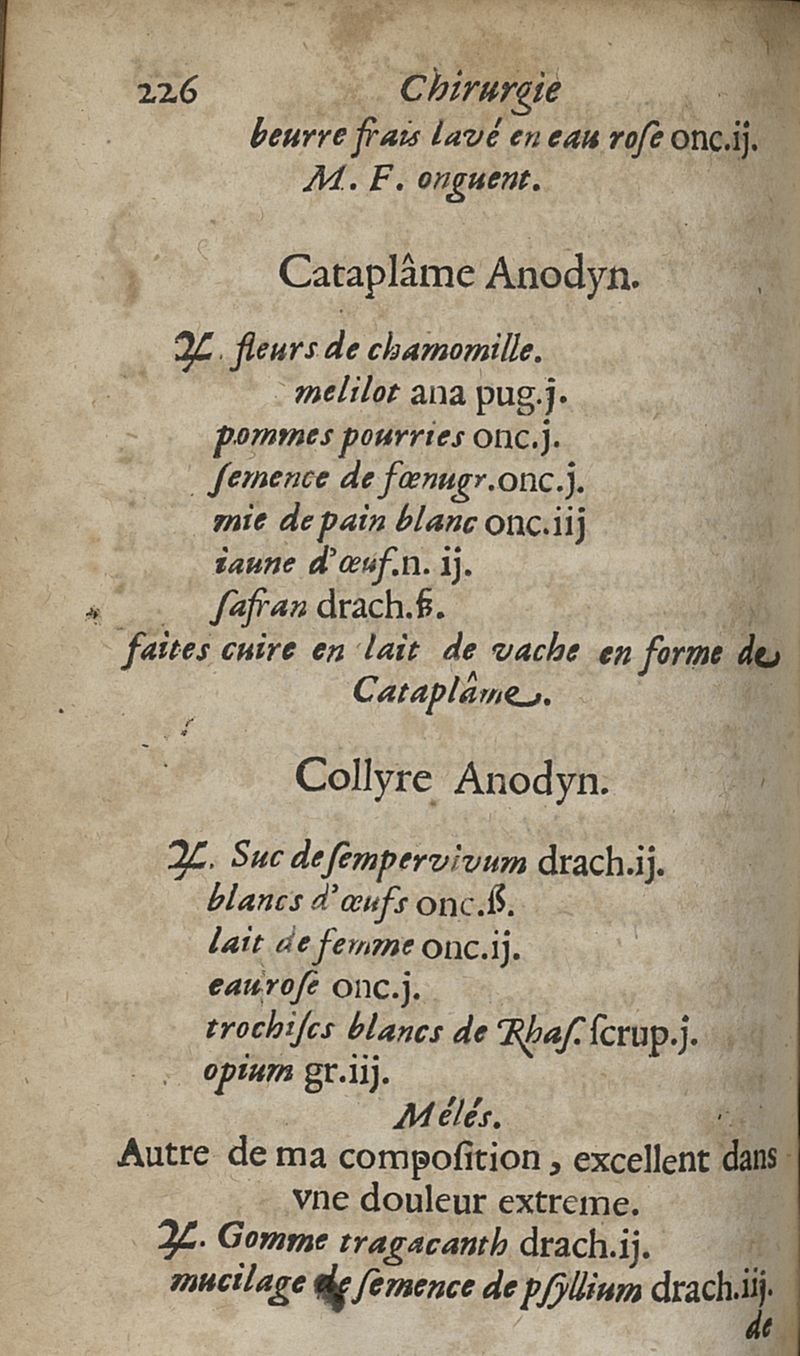 226 Chirurgie
beurre frais lavé en eau roſe onc.ij.
M. F. onguent.
Cataplâme Anodyn.
♃. fleurs de chamomille.
melilot ana pug.j.
pommes pourries onc.j.
ſemence de fœnugr.onc.j.
mie de pain blanc onc.iij
iaune d'œuf.n. ij.
ſafran drach.ß.
faites cuire en lait de vache en forme de
Cataplâme.
Collyre Anodyn.
♃. Suc de ſempervivum drach.ij.
blancs d'œufs onc.ß.
lait de femme onc.ij.
eau roſe onc.j.
trochiſcs blancs de Rhaſ. ſcrup.j.
opium gr.iij.
Mélés.
Autre de ma compoſition, excellent dans
vne douleur extreme.
♃. Gomme tragacanth drach.ij.
mucilage de ſemence de pſyllium drach.iij.
de